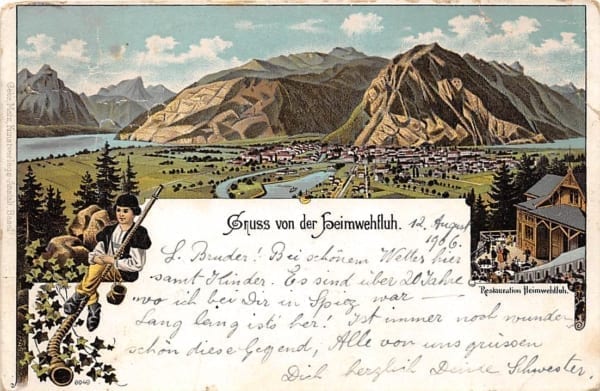 Gruss von der Heimwehfluh.
12. August
1906.
L. Bruder! Bei schönem Wetter hier
samt Kinder. Es sind über 20 Jahre
wo ich bei Dir in Spiez war —
Lang lang ists her! Ist immer noch wunder
schön diese Gegend, Alle von uns grüssen
Dich herzlich Deine Schwester.
Restauration Heimwehfluh.
Gebr. Metz, Kunstverlags-Anstalt Basel
6648